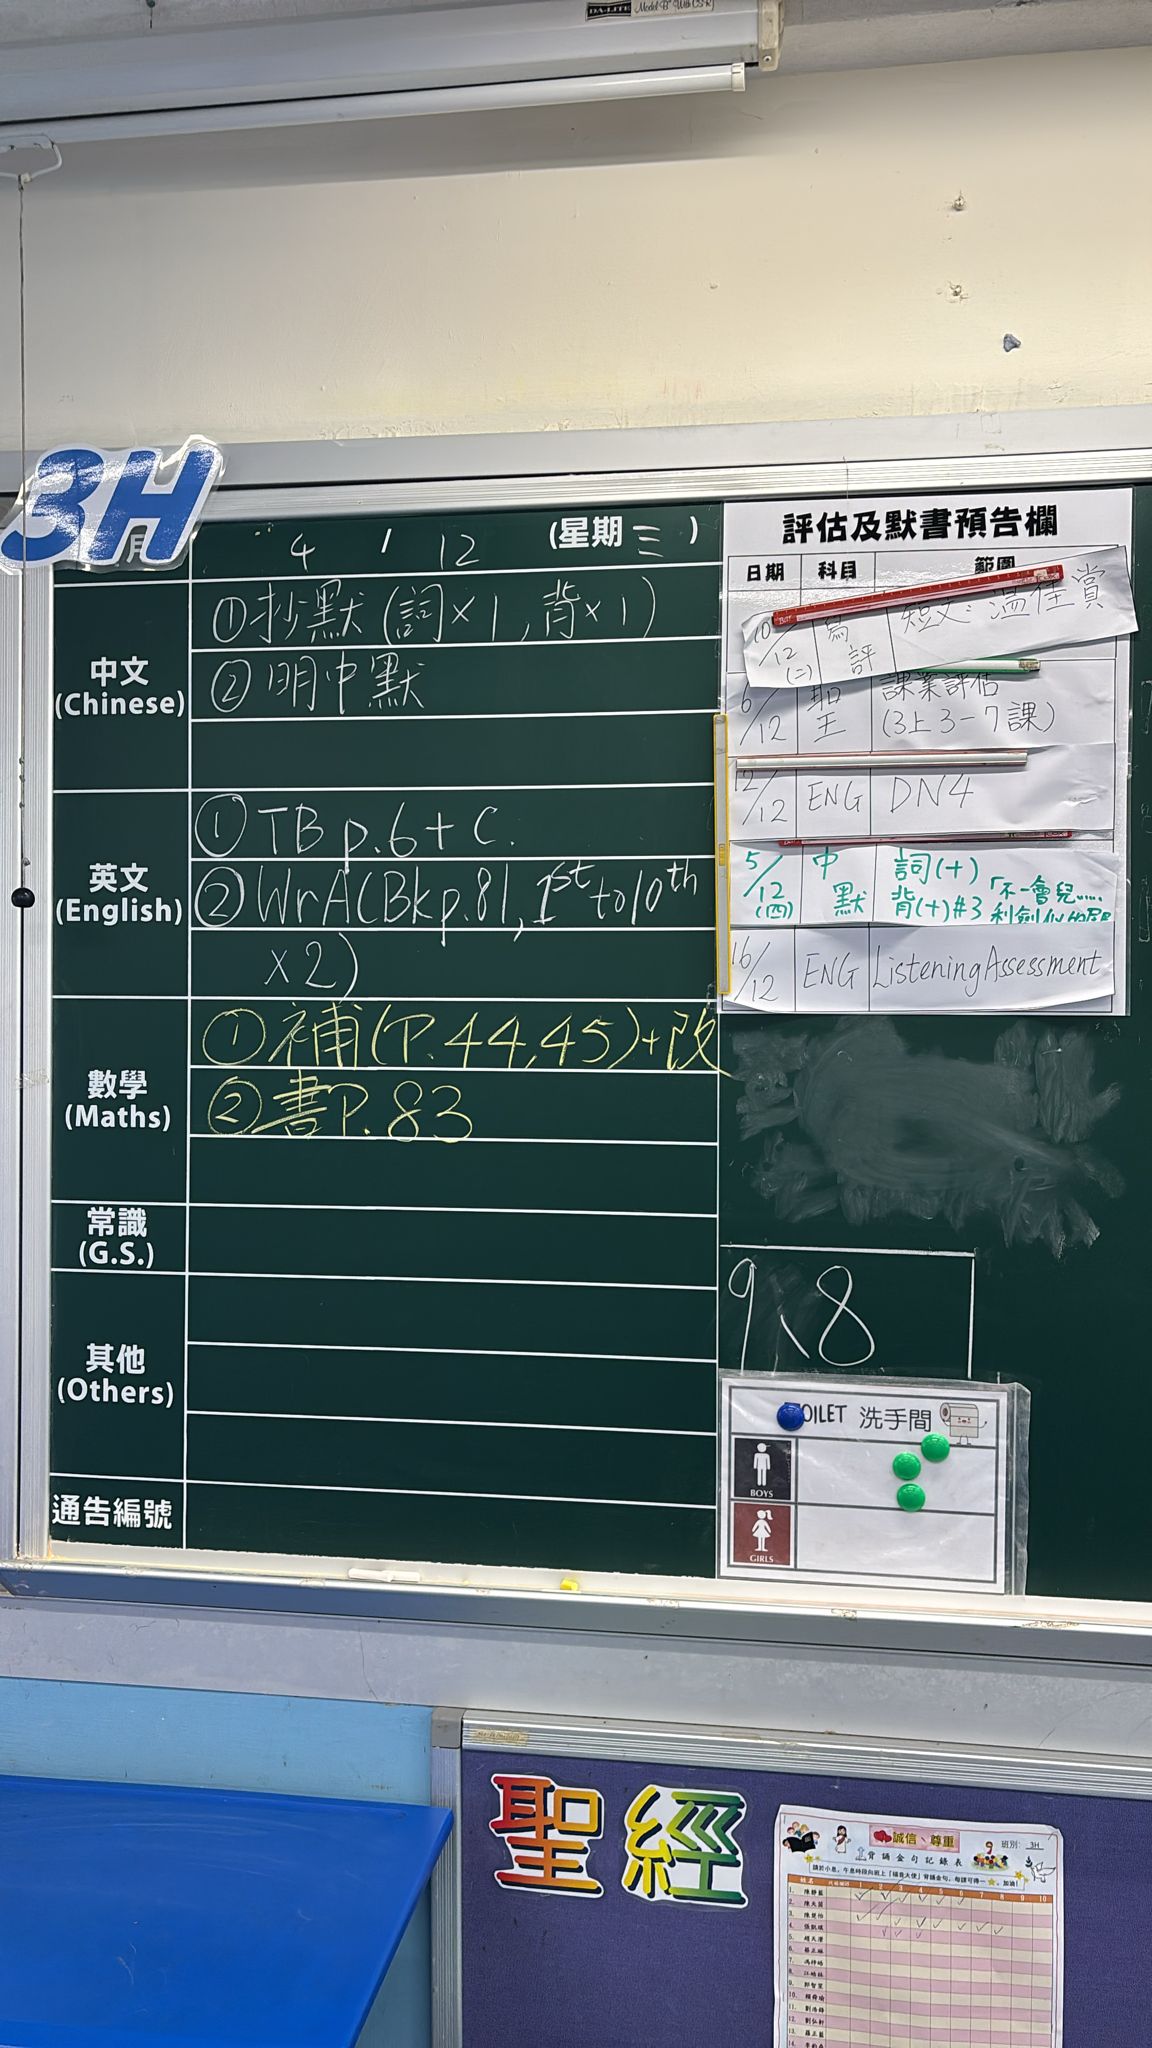 DA-LITE Model B With CSR
3H
月 4 / 12 (星期三)
中文
(Chinese)
①抄默(詞×1,背×1)
②明中默
英文
(English)
①TB p.6+C.
②WrA(Bk p.81, 1st to 10th
×2)
數學
(Maths)
①補(P.44,45)+改
②書P.83
常識
(G.S.)
其他
(Others)
通告編號
評估及默書預告欄
日期 科目 範圍
10/12 (二) 寫評 短文:溫佳賞
6/12 聖 課業評估
(3上3-7課)
12/12 ENG DN4
5/12 (四) 中默 詞(+)
背(+)#3「不一會兒……
16/12 ENG Listening Assessment
9、8
TOILET 洗手間
BOYS
GIRLS
聖經
誠信、尊重
班別: 3H
背誦金句記錄表
姓名 1 2 3 4 5 6 7 8 9 10
1.
2.
3.
4.
5.
6.
7.
8.
9.
10.
11.
12.
13.
14.